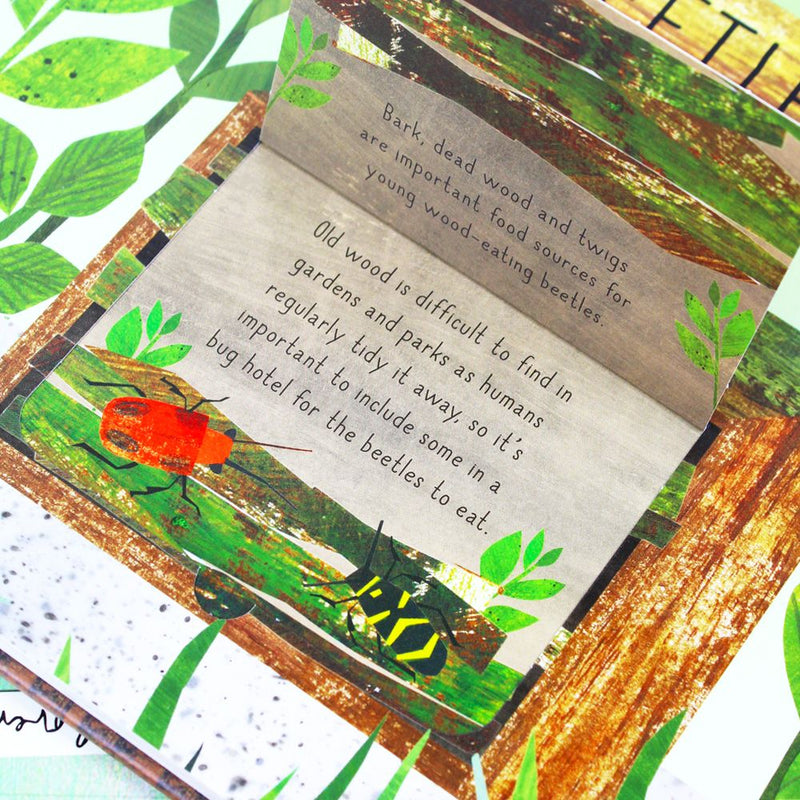 Bark, dead wood and twigs
are important food sources for
young wood-eating beetles.
Old wood is difficult to find in
gardens and parks as humans
regularly tidy it away, so it's
important to include some in a
bug hotel for the beetles to eat.